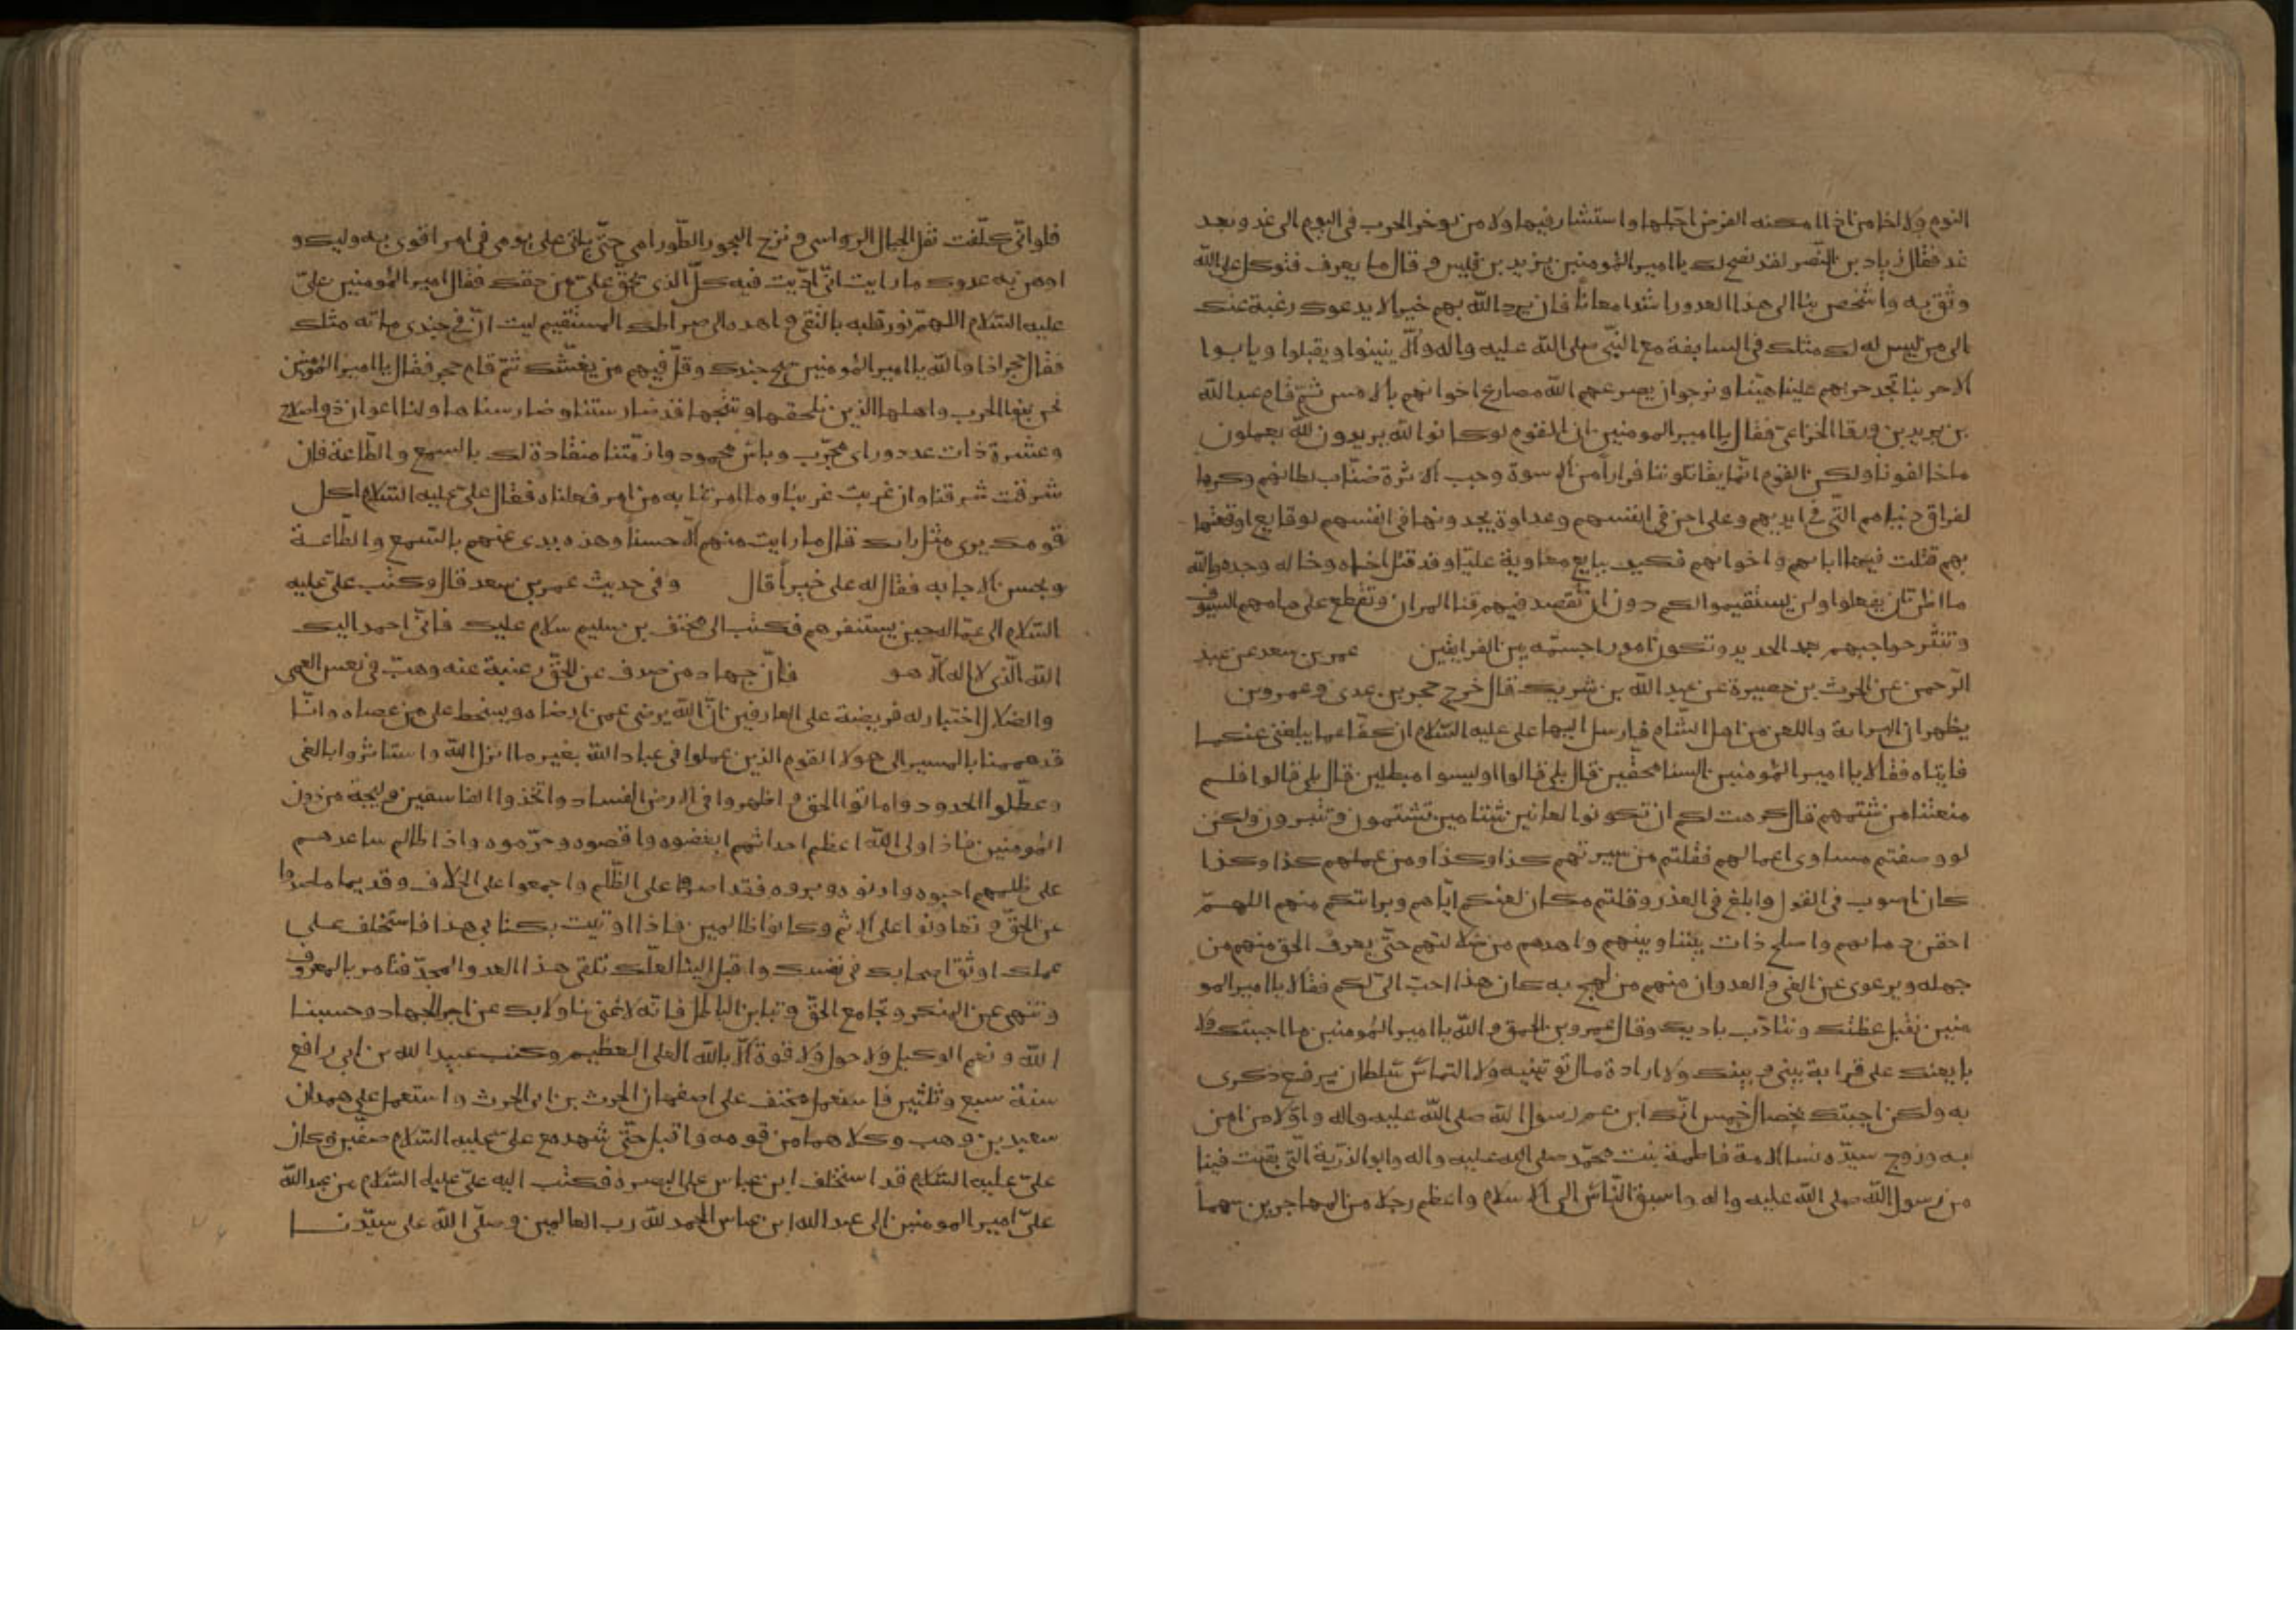 النوم ولا اخا من اذا امكنه الفرض اجّلها واستشار فيها ولا من يوخر الحرب في اليوم الى غد وبعد
غد فقال زياد بن النّضر لقد نصح لك يا امير المؤمنين يزيد بن قيس وقال ما يعرف فتوكل على الله
وثق به واشخص بنا الى هذا العدو راشدا معانًا فان يرد الله بهم خيرا لا يدعوك رغبة عنك
الى من ليس له لك مثلك في السابقة مع النبّي صلى الله عليه واله والّا ينيبوا ويقبلوا ويابوا
الا حربنا تجد حربهم علينا هيّنا ونرجو ان يصرعهم الله مصارع اخوانهم بالامس ثمّ قام عبد الله
بن بديل بن ورقا الخزاعيّ فقال يا امير المومنين ان القوم لو كانوا الله يريدون لله يعملون
ما خالفونا ولكن القوم انّما يقاتلوننا فرارًا من الاسوة وحب الاثرة ضنّا بسلطانهم وكرها
لفراق دنياهم التّي في ايديهم وعلى احن في انفسهم وعداوة يجدونها في انفسهم لوقايع اوقعتها
بهم قتلت فيها اباهم واخوانهم فكيف يبايع معاوية عليّا وقد قتل اخاه وخاله وجده والله
ما اظن ان يفعلوا ولن يستقيموا لكم دون ان تقصد فيهم قنا المران وتقطع على هامهم السيوف
وتنثر حواجبهم بعمد الحديد وتكون امورا جسمّه بين الفريقين عمر بن سعد عن عبد
الرّحمن عن الحرث بن حصيرة عن عبد الله بن شريك قال خرج حجر بن عدى وعمرو بن
يظهران البراءة واللعن من اهل الشّام فارسل اليهما على عليه السّلام ان كفّا عما يبلغني عنكما
فاتياه فقالا يا امير المؤمنين السنا محقّين قال بلى قالوا او ليسوا مبطلين قال بلى قالوا فلم
منعتنا من شتمهم قال كرهت لكم ان تكونوا لعانين شتامين تشتمون وتتبرون ولكن
لو وصفتم مساوى اعمالهم فقلتم من سيرتهم كذا وكذا ومن عملهم كذا وكذا
كان اصوب في القول وابلغ في العذر وقلتم مكان لعنكم ايّاهم وبراتكم منهم اللهمّ
احقن دماهم واصلح ذات بيننا وبينهم واهدهم من ضلالتهم حتّى يعرف الحق منهم من
جهله ويرعوى عن الغى والعدوان منهم من لهج به كان هذا احبّ الىّ لكم فقالا يا امير المو
منين نقبل عظتك ونتادّب بادبك وقال عمرو بن الحمق والله يا امير المؤمنين ما اجبتك ولا
بايعتك على قرابة بيني وبينك ولا ارادة مال تؤتينيه ولا التماسّ سلطان يرفع ذكرى
به ولكن اجبتك بخصال خمس انّك ابن عم رسول الله صلى الله عليه واله واوّلا من امن
به وزوج سيّده نسا الامة فاطمة بنت محمّد صلى الله عليه واله وابو الذرّيّة الّتي بقيت فينا
من رسول الله صلى الله عليه واله واسبق النّاس الى الاسلام واعظم رجلا من المهاجرين سهما
فلو انّي كلّفت نقل الجبال الرواسى ونزح البحور الطّوراهى حتّى ياتى على يومى في امر اقوى به وليك و
اوهن به عدوك ما رايت انّي ادّيت فيه كلّ الذي يحق علىّ من حقك فقال امير المؤمنين علىّ
عليه السّلام اللهمّ نوّر قلبه بالتقى واهده الى صراطك المستقيم ليت انّ في جندى ماته مثلك
فقال حجر اذا والله يا امير المؤمنين صح جندك وقلّ فيهم من يغشّك ثمّ قام حجر فقال يا امير المؤمنين
نحن بنو الحرب واهلها الذين نلحقها وننتجها قد ضارستنا وضارسناها ولنا اعوان ذو اصلاح
وعشرة ذات عدد وراى مجرّب وباس محمود وازمّتنا منقادة لك بالسمع والطّاعة فان
شرقت شرقنا وان غربت غربنا وما امرتنا به من امر فعلناه فقال علىّ عليه السّلام اكل
قومك يرى مثل رايك قال ما رايت منهم الّا حسنا وهذه يدى عنهم بالسّمع والطّاعة
وبحسن الاجابه فقال له على خيرا قال وفي حديث عمر بن سعد قال وكتب علىّ عليه
السّلام الى عمّاله حين يستنفرهم فكتب الى مخنف بن سليم سلام عليك فانّي احمد اليك
الله الّذي لا اله الّا هو فانّ جهاد من صدف عن الحقّ رغبة عنه وهبّ في نعس العمى
والضلال اختيار له فريضة على العارفين انّ الله يرضى عمن ارضاه ويسخط على من عصاه وانّا
قد هممنا بالمسير الى هولا القوم الذين عملوا في عباد الله بغير ما انزل الله واستاثروا بالفى
وعطّلوا الحدود واماتوا الحق واظهروا في الارض الفساد واتّخذوا الفاسقين وليجة من دون
المؤمنين فاذا ولى الله اعظم احداثهم ابغضوه واقصوه وحرّموه واذا ظالم ساعدهم
على ظلمهم احبوه وادنوه وبروه فقد اصروا على الظّلم واجمعوا على الخلاف وقديما ما صدوا
عن الحقّ وتعاونوا على الاثم وكانوا ظالمين فاذا اوتيت بكتابي هذا فاستخلف على
عملك اوثق اصحابك في نفسك واقبل الينا لعلّك تلقى هذا العدو المحلّ فتامر بالمعروف
وتنهى عن المنكر وتجامع الحقّ وتباين الباطل فانّه لا غنى بنا ولا بك عن اجر الجهاد وحسبنا
الله ونعم الوكيل ولا حول ولا قوة الّا بالله العلى العظيم وكتب عبيد الله بن ابي رافع
سنة سبع وثلثين فاستعمل مخنف على اصفهان الحرث بن ابي الحرث واستعمل على همدان
سعيد بن وهب وكلاهما من قومه واقبل حتّى شهد مع علىّ عليه السّلام صفّين وكان
علىّ عليه السّلام قد استخلف ابن عباس على البصره فكتب اليه علىّ عليه السّلام من عبد الله
علىّ امير المومنين الى عبد الله ابن عباس الحمد للّه رب العالمين وصلّى الله على سيّدنا